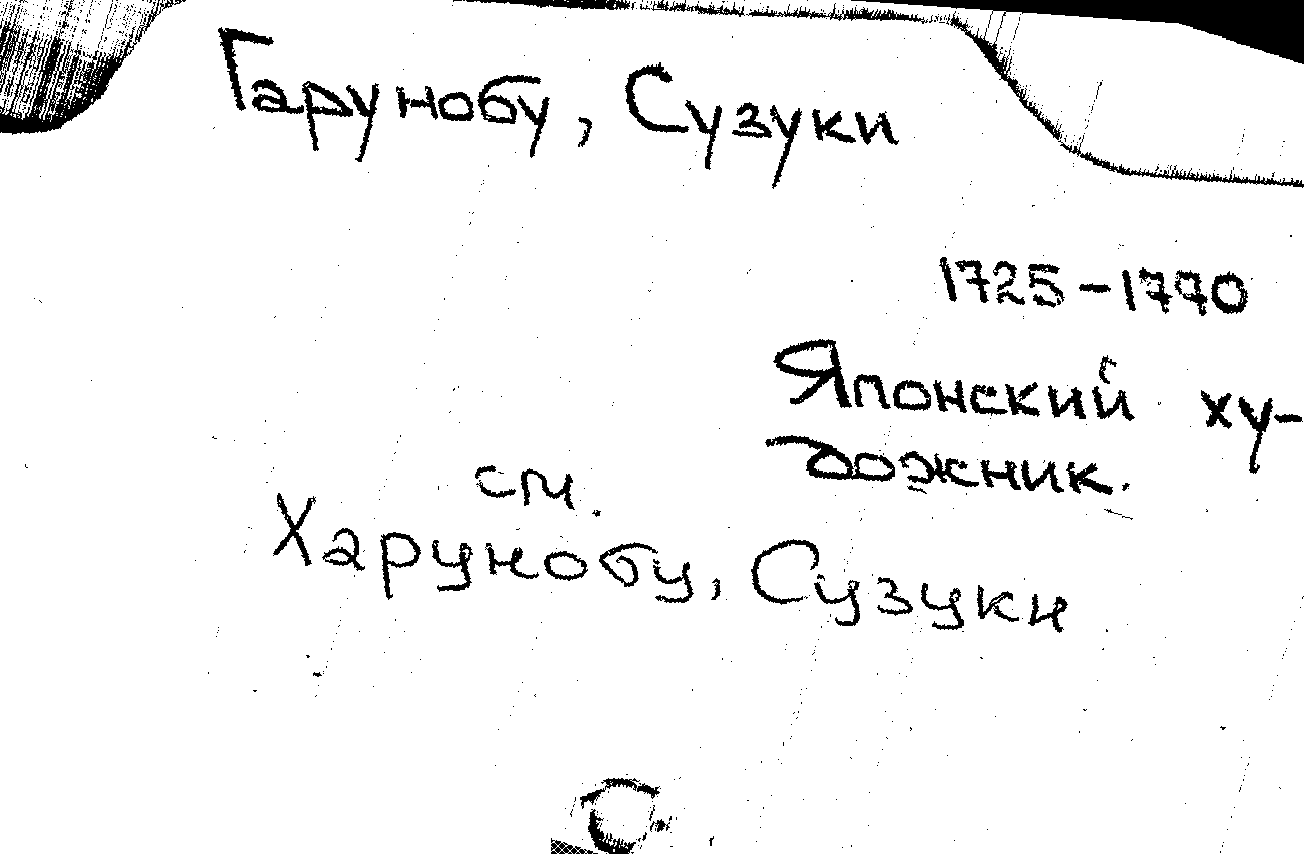 Гарунобу, Сузуки
1725-1770
Японский ху-
дожник.
см.
Харунобу, Сузуки